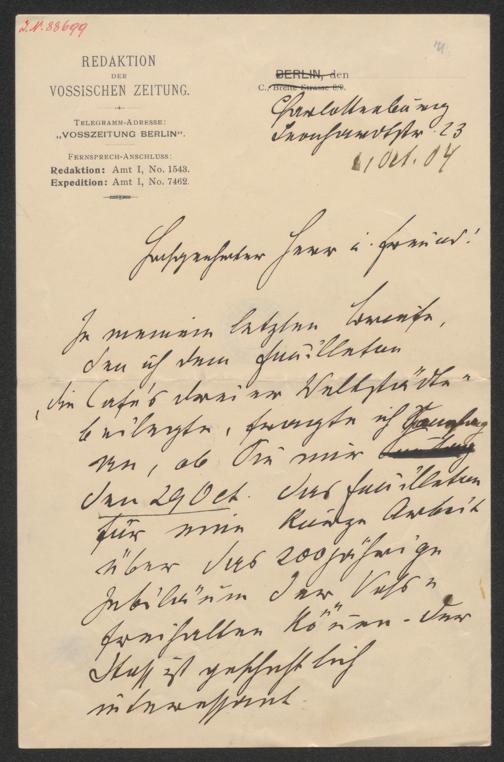 I.N. 88699
REDAKTION
DER
VOSSISCHEN ZEITUNG.
TELEGRAMM-ADRESSE:
„VOSSZEITUNG BERLIN".
FERNSPRECH-ANSCHLUSS:
Redaktion: Amt I, No. 1543.
Expedition: Amt I, No. 7462.
BERLIN, den
C., Breite Strasse 8/9.
Charlottenburg
Leonhardtstr. 23
Oct. 04
Hochgeehrter Herr u. Freund!
In meinem letzten Briefe,
den ich dem Feuilleton
„Die Cafés dreier Weltstädte"
beilegte, fragte ich Samstag
an, ob Sie mir
den 29 Oct. das Feuilleton
für eine kurze Arbeit
über das 200jährige
Jubiläum der Voss"
freihalten können. Der
Stoff ist geschichtlich
interessant.